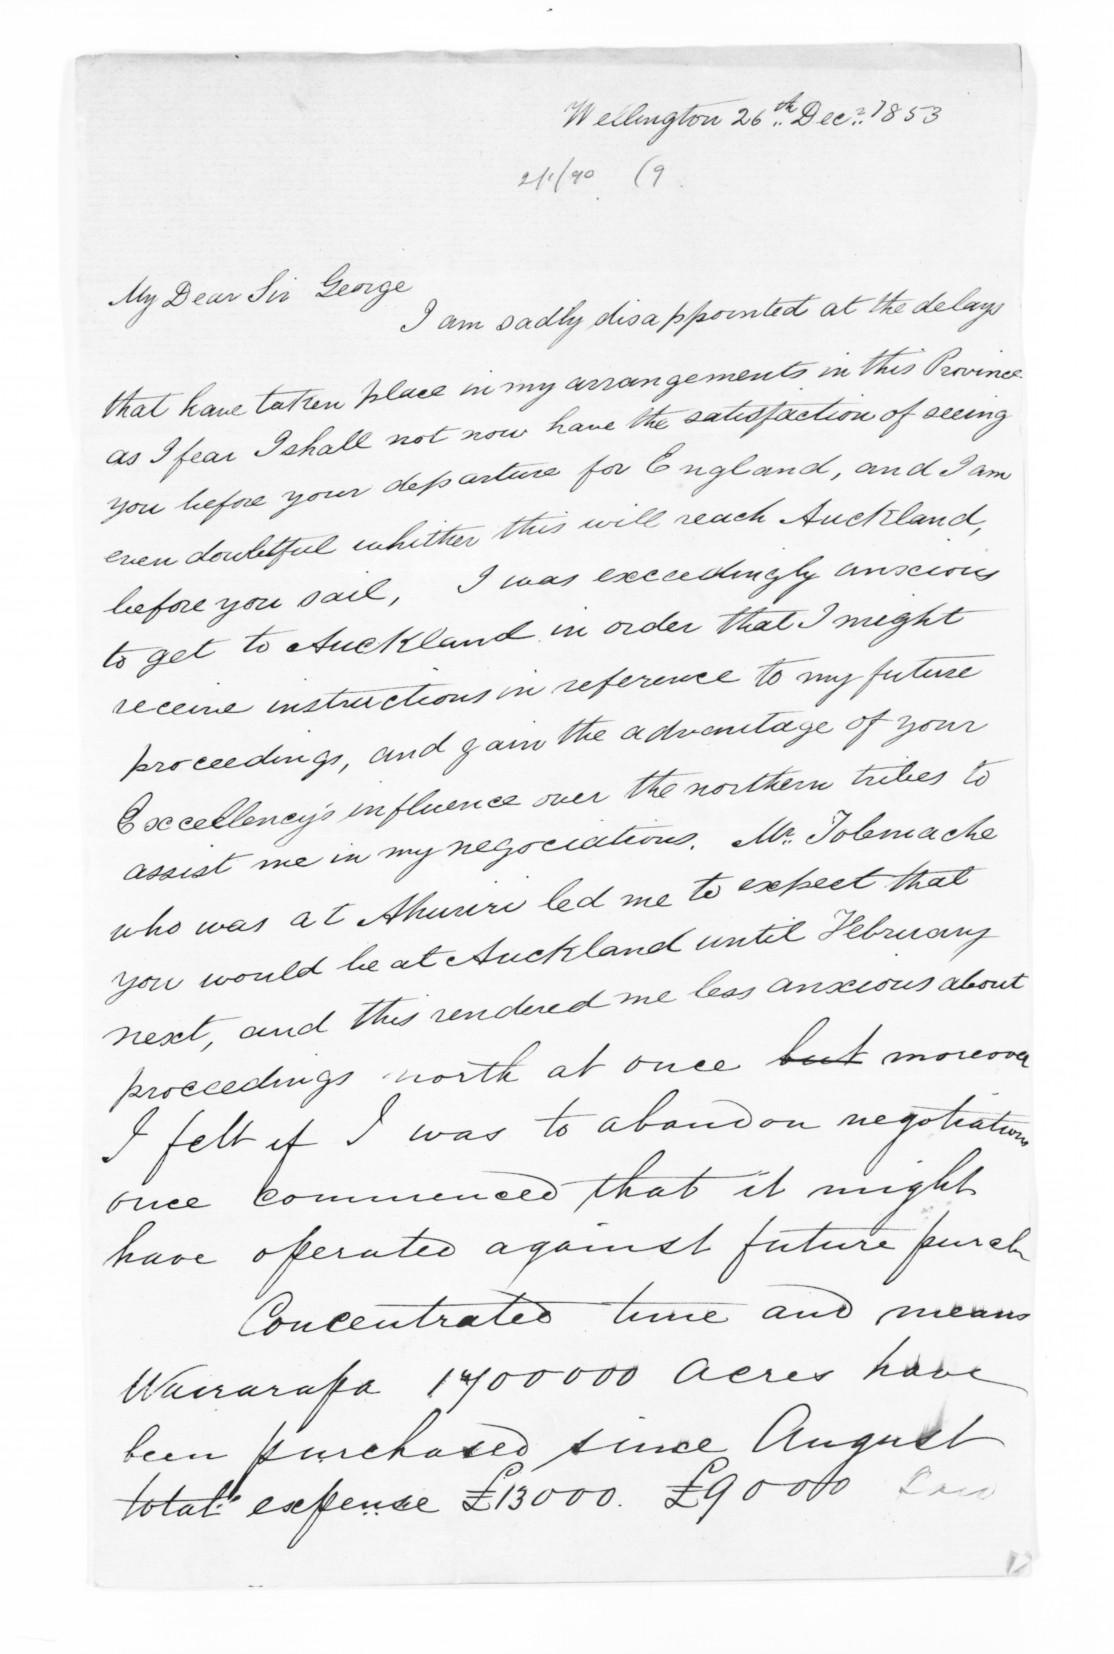 Wellington 26th Decr. 1853
2/1/90 (9
My Dear Sir George
I am sadly disappointed at the delays
that have taken place in my arrangements in this Province
as I fear I shall not now have the satisfaction of seeing
you before your departure for England, and I am
even doubtful whither this will reach Auckland,
before you sail, I was exceedingly anxious
to get to Auckland in order that I might
receive instructions in reference to my future
proceedings, and gain the advantage of your
Excellency's influence over the northern tribes to
assist me in my negociations. Mr. Tolemache
who was at Ahuriri led me to expect that
you would be at Auckland until February
next, and this rendered me less anxious about
proceedings north at once but moreover
I felt if I was to abandon negotiations
once commenced that it might
have operated against future purch
Concentrated time and means
Wairarapa 1700000 acres have
been purchased since August
total expense £13000. £9000